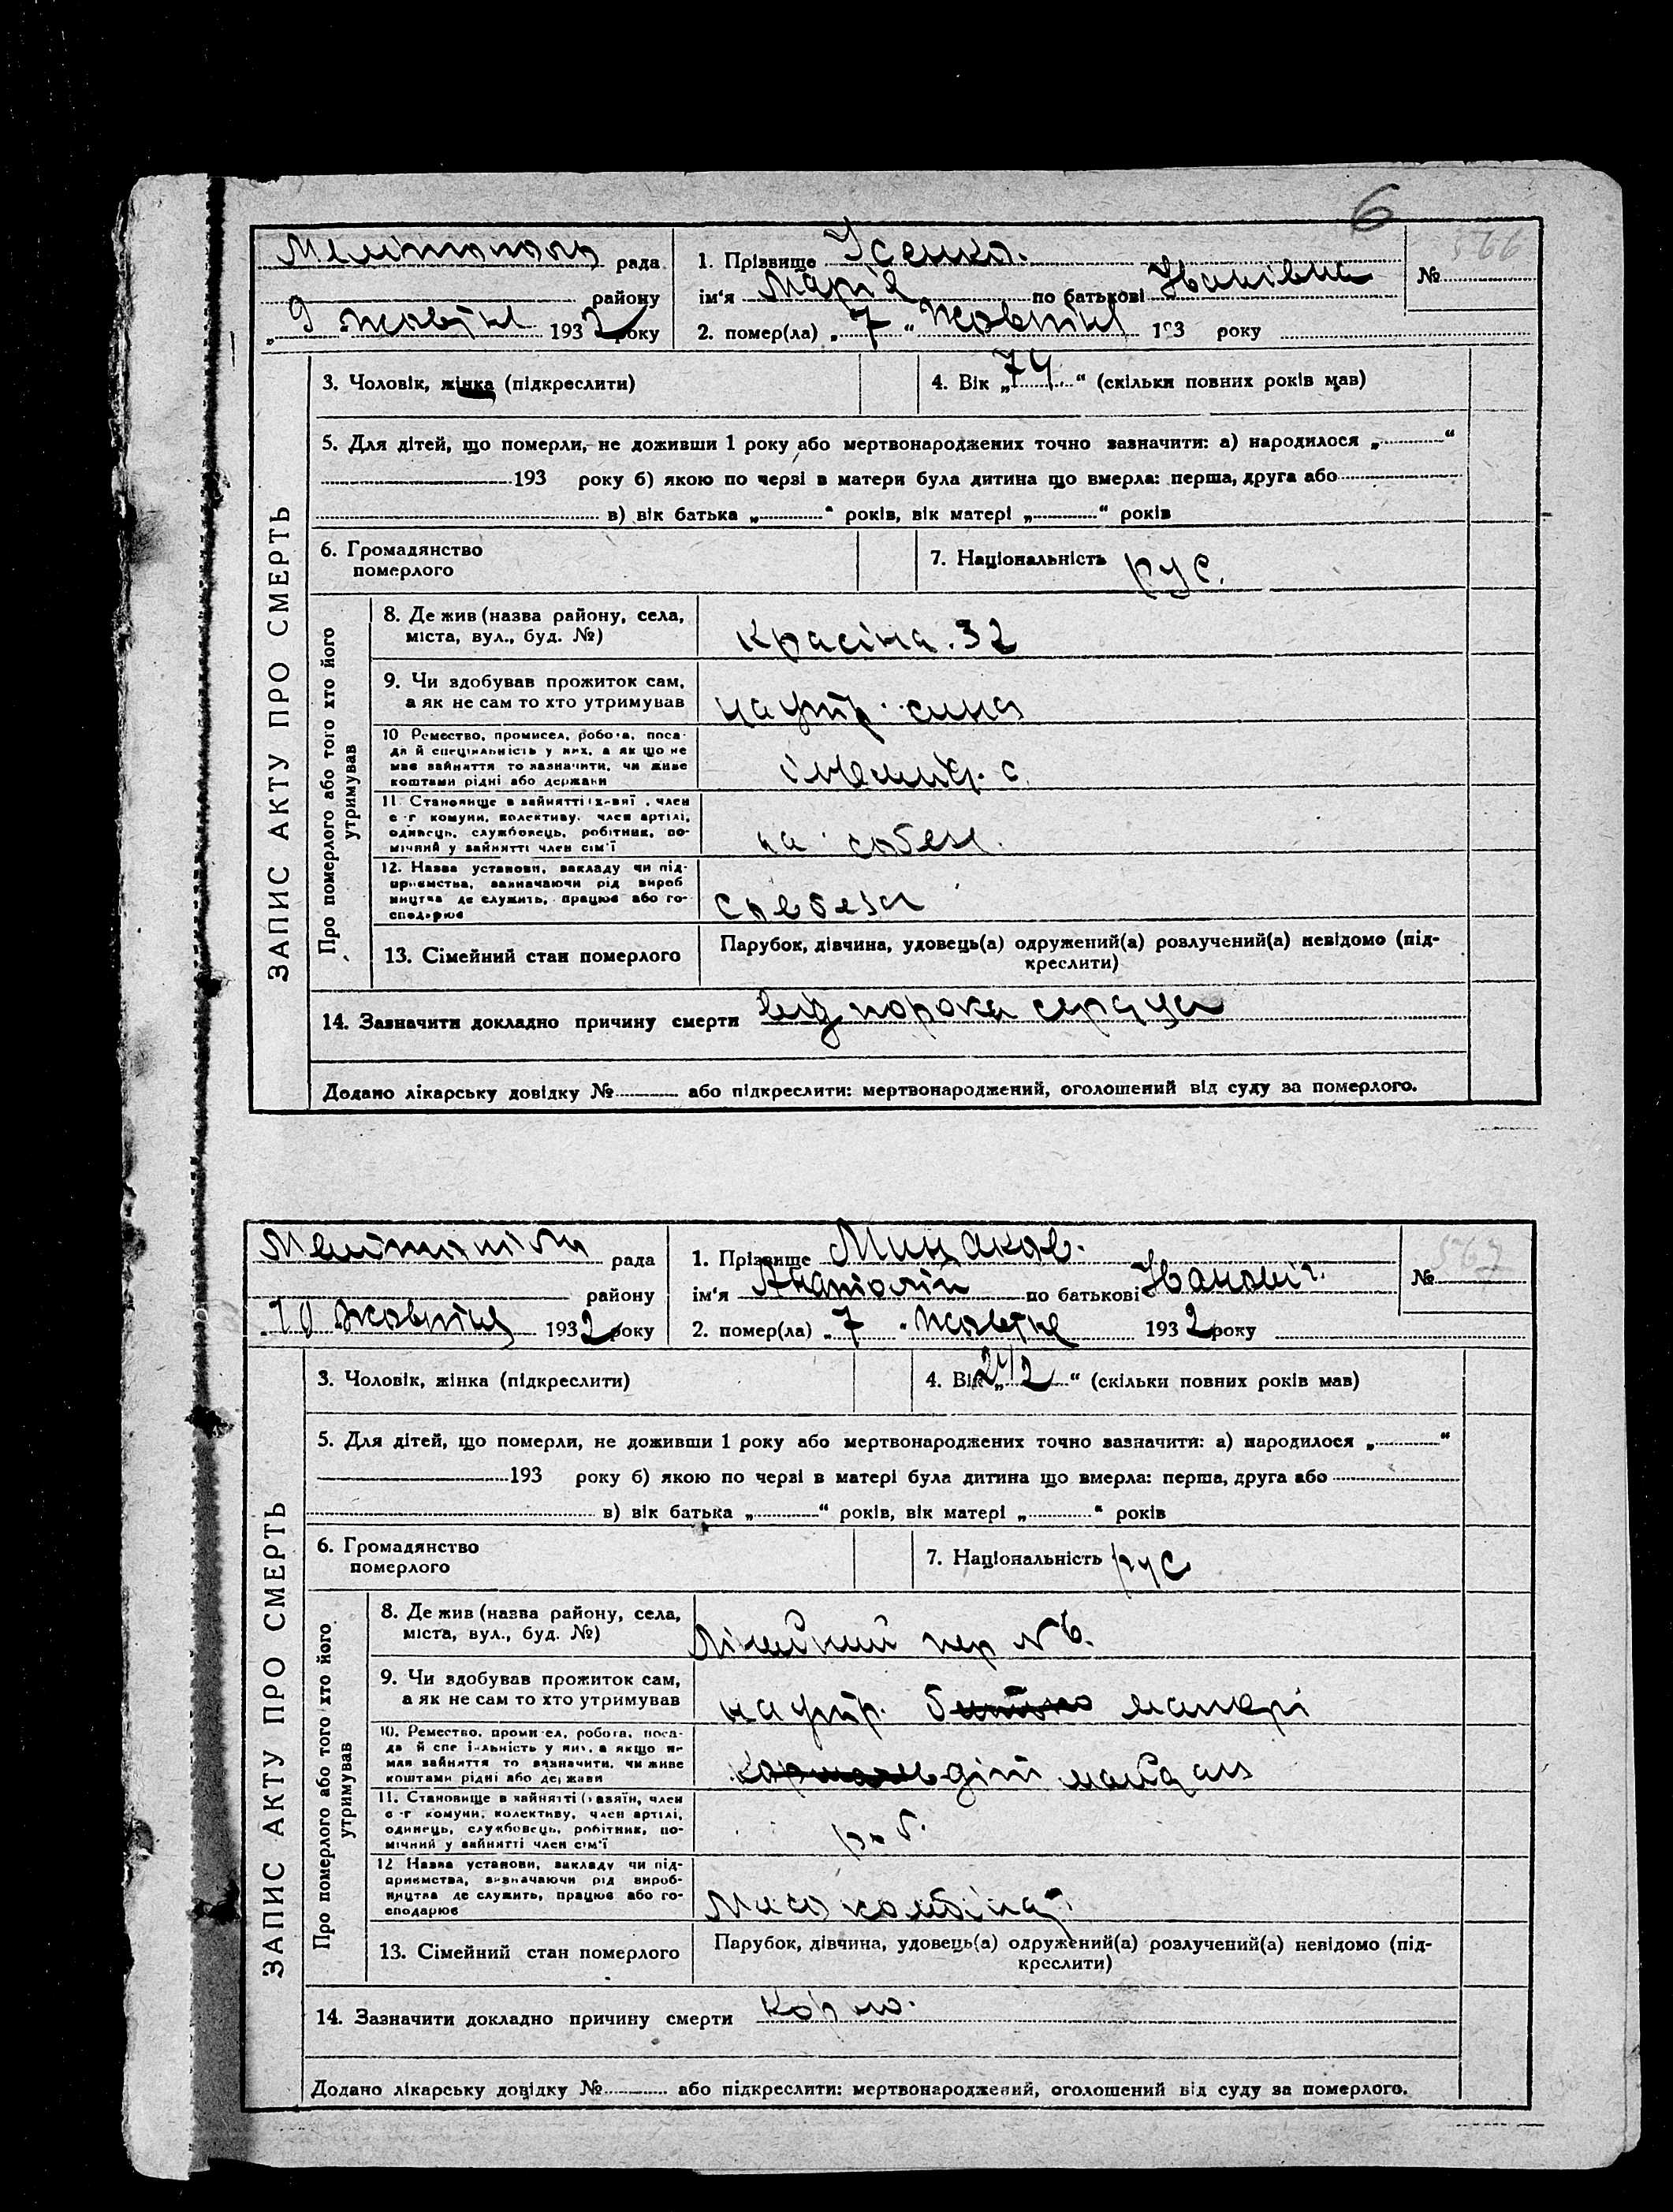 6
рада
1. Прізвище Усенко.
№ 566
району
ім'я Марія по батькові Іванівна
„9 жовтня 1932 року
2. помер(ла) „7" жовтня 193 року
3. Чоловік, жінка (підкреслити)
4. Вік „74" (скільки повних років мав)
5. Для дітей, що померли, не доживши 1 року або мертвонароджених точно зазначити: а) народилося „ "
193 року б) якою по черзі в матери була дитина що вмерла: перша, друга або
в) вік батька „ " років, вік матері „ " років
6. Громадянство
померлого
7. Національність рус.
ЗАПИС АКТУ ПРО СМЕРТЬ
Про померлого або того хто його
утримував
8. Де жив (назва району, села,
міста, вул., буд. №)
Красіна. 32
9. Чи здобував прожиток сам,
а як не сам то хто утримував
на утр. сина
10 Ремество, промисел, робота, поса-
да й специяльність у них, а як що не
має зайняття то зазначити, чи живе
коштами рідні або держави
11. Становище в зайнятті (х-зяї , член
с-г комуни, колективу, член артілі,
одинець, службовець, робітник, по-
мічний у зайнятті член сім'ї
12. Назва установи, закладу чи під-
приємства, зазначаючи рід вироб
ництва де служить, працює або го-
сподарює
13. Сімейний стан померлого
Парубок, дівчина, удовець(а) одружений(а) розлучений(а) невідомо (під-
креслити)
14. Зазначити докладно причину смерти від порока сердца
Додано лікарську довідку № або підкреслити: мертвонароджений, оголошений від суду за померлого.
рада
1. Прізвище Минаков.
№ 567
району
ім'я Анатолій по батькові Іванович.
„10 жовтня 1932 року
2. помер(ла) „7 " жовтня 1932 року
3. Чоловік, жінка (підкреслити)
4. Вік „2 1/2" (скільки повних років мав)
5. Для дітей, що померли, не доживши 1 року або мертвонароджених точно зазначити: а) народилося „ "
193 року б) якою по черзі в матері була дитина що вмерла: перша, друга або
в) вік батька „ " років, вік матері „ " років
6. Громадянство
померлого
7. Національність рус
ЗАПИС АКТУ ПРО СМЕРТЬ
Про померлого або того хто його
утримував
8. Де жив (назва району, села,
міста, вул., буд. №)
Лінейний пер № 6.
9. Чи здобував прожиток сам,
а як не сам то хто утримував
на утр. батько матері
10. Ремество, промисел, робота, поса-
да й спеціяльність у них, а якщо не
має зайняття то зазначити, чи живе
коштами рідні або держави
11. Становище в зайнятті (хазяїн, член
с-г комуни, колективу, член артілі,
одинець, службовець, робітник, по-
мічний у зайнятті член сім'ї
роб.
12 Назва установи, закладу чи під-
приємства, зазначаючи рід вироб-
ництва де служить, працює або го-
сподарює
Мясокомбінат
13. Сімейний стан померлого
Парубок, дівчина, удовець(а) одружений(а) розлучений(а) невідомо (під-
креслити)
14. Зазначити докладно причину смерти корью.
Додано лікарську довідку № або підкреслити: мертвонароджений, оголошений від суду за померлого.